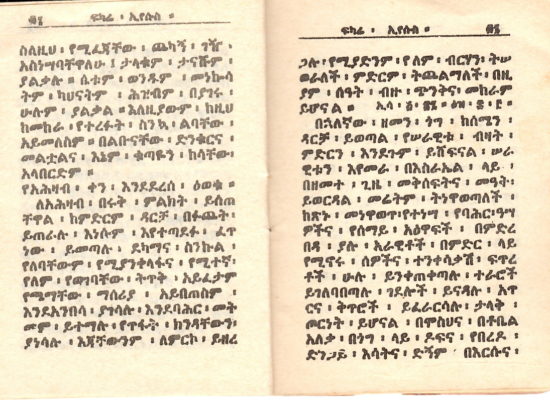 ፍካሬ ፡ ኢየሱስ ።
ስለዚህ ፡ የሚፈጃቸው ፡ ጨካኝ ፡ ገዥ ፡
አስነሣባቸዋለሁ ፤ ታላቁም ፡ ታናሹም ፡
ያልቃሉ ። ሴቱም ፡ ወንዱም ፡ መነኩሳ
ትም ፡ ካህናትም ፡ ሕዝብም ፡ በያገሩ ፡
ሁሉም ፡ ያልቃል ። እለዚያውም ፡ ከዚህ
ከመከራ ፡ የተረፉት ፡ ስንኳ ፡ ልባቸው ፡
አይመለስም ። በልቡናቸው ፡ ድንቁርና ፡
መልቷልና ፡ እኔም ፡ ቁጣዬን ፡ ከላቸው፡
አላበርድም ።
የአሕዛብ ፡ ቀን ፡ እንደደረሰ ፡ ዕወቁ ።
ለአሕዛብ ፡ በሩቅ ፡ ምልክት ፡ ይሰጠ
ቸዋል ፡ ከምድርም ፡ ዳርቻ ፡ በፉጨት፡
ይጠራሉ ፡ እነሱም ፡ እየተጻደፉ ፡ ፈጥ
ነው ፡ ይመጣሉ ፡ ደካማና ፡ ስንኩል ፡
የለባቸውም ፡ የሚያንቀላፋና ፡ የሚተኛ፡
የለም ፡ የወገባቸው ፡ ትጥቅ ፡ አይፈታም
የጫማቸው ፡ ማሰሪያ ፡ አይበጠስም ፡
እንደአንበሳ ፡ ያገሳሉ ፡ እንደባሕር ፡ መት
መም ፡ ይተማሉ ፡ የጥፋት ፡ ክንዳቸውን፡
ያነሳሉ ፡ እጃቸውንም ፡ ለምርኮ ፡ ይዘረ
ፍካሬ ፡ ኢየሱስ ።
ጋሉ ፡ የሚያድንም ፡ የለም ፡ ብርሃን፡ ትሠ
ወራለች ፡ ምድርም ፡ ትጨልማለች ፡ በዚ
ያም ፡ ሰዓት ፡ ብዙ ፡ ጭንቅና ፡ መከራም
ይሆናል ።
በኋለኛው ፡ ዘመን ፡ ጎግ ፡ ከሰሜን ፡
ዳርቻ ፡ ይወጣል ፡ የሠራዊቱ ፡ ብዛት ፡
ምድርን ፡ እንደጉም ፡ ይሸፍናል ፡ ሠራ
ዊቱን ፡ እየመራ ፡ በእስራኤል ፡ ላይ ፡
በዘመተ ፡ ጊዜ ፡ መቅሰፍትና ፡ መዓት፡
ይወርዳል ፡ መሬትም ፡ ትነዋወጣለች ፡
ከጽኑ ፡ መነዋወጥ፡የተነሣ ፡ የባሕር፡ዓሣ
ዎችና ፡ የሰማይ ፡ አዕዋፎች ፡ በምድረ
በዳ ፡ ያሉ ፡ አራዊቶች ፡ በምድር ፡ ላይ
የሚኖሩ ፡ ሰዎችና ፡ ተንቀሳቃሽ ፡ ፍጥረ
ቶች ፡ ሁሉ ፡ ይንቀጠቀጣሉ ፡ ተራሮች
ይገለባበጣሉ ፡ ገደሎች ፡ ይናዳሉ ፡ አጥ
ርና ፡ ቅጥሮች ፡ ይፈራርሳሉ፡ ታላቅ ፡
ጦርነት ፡ ይሆናል ፡ በሞስህና ፡ በቶቤል
አለቃ ፡ በጎግ ፡ ላይ ፡ ዶፍና ፡ የበረዶ ፡
ድንጋይ ፡ እሳትና ፡ ድኝም ፡ በእርሱና ፡